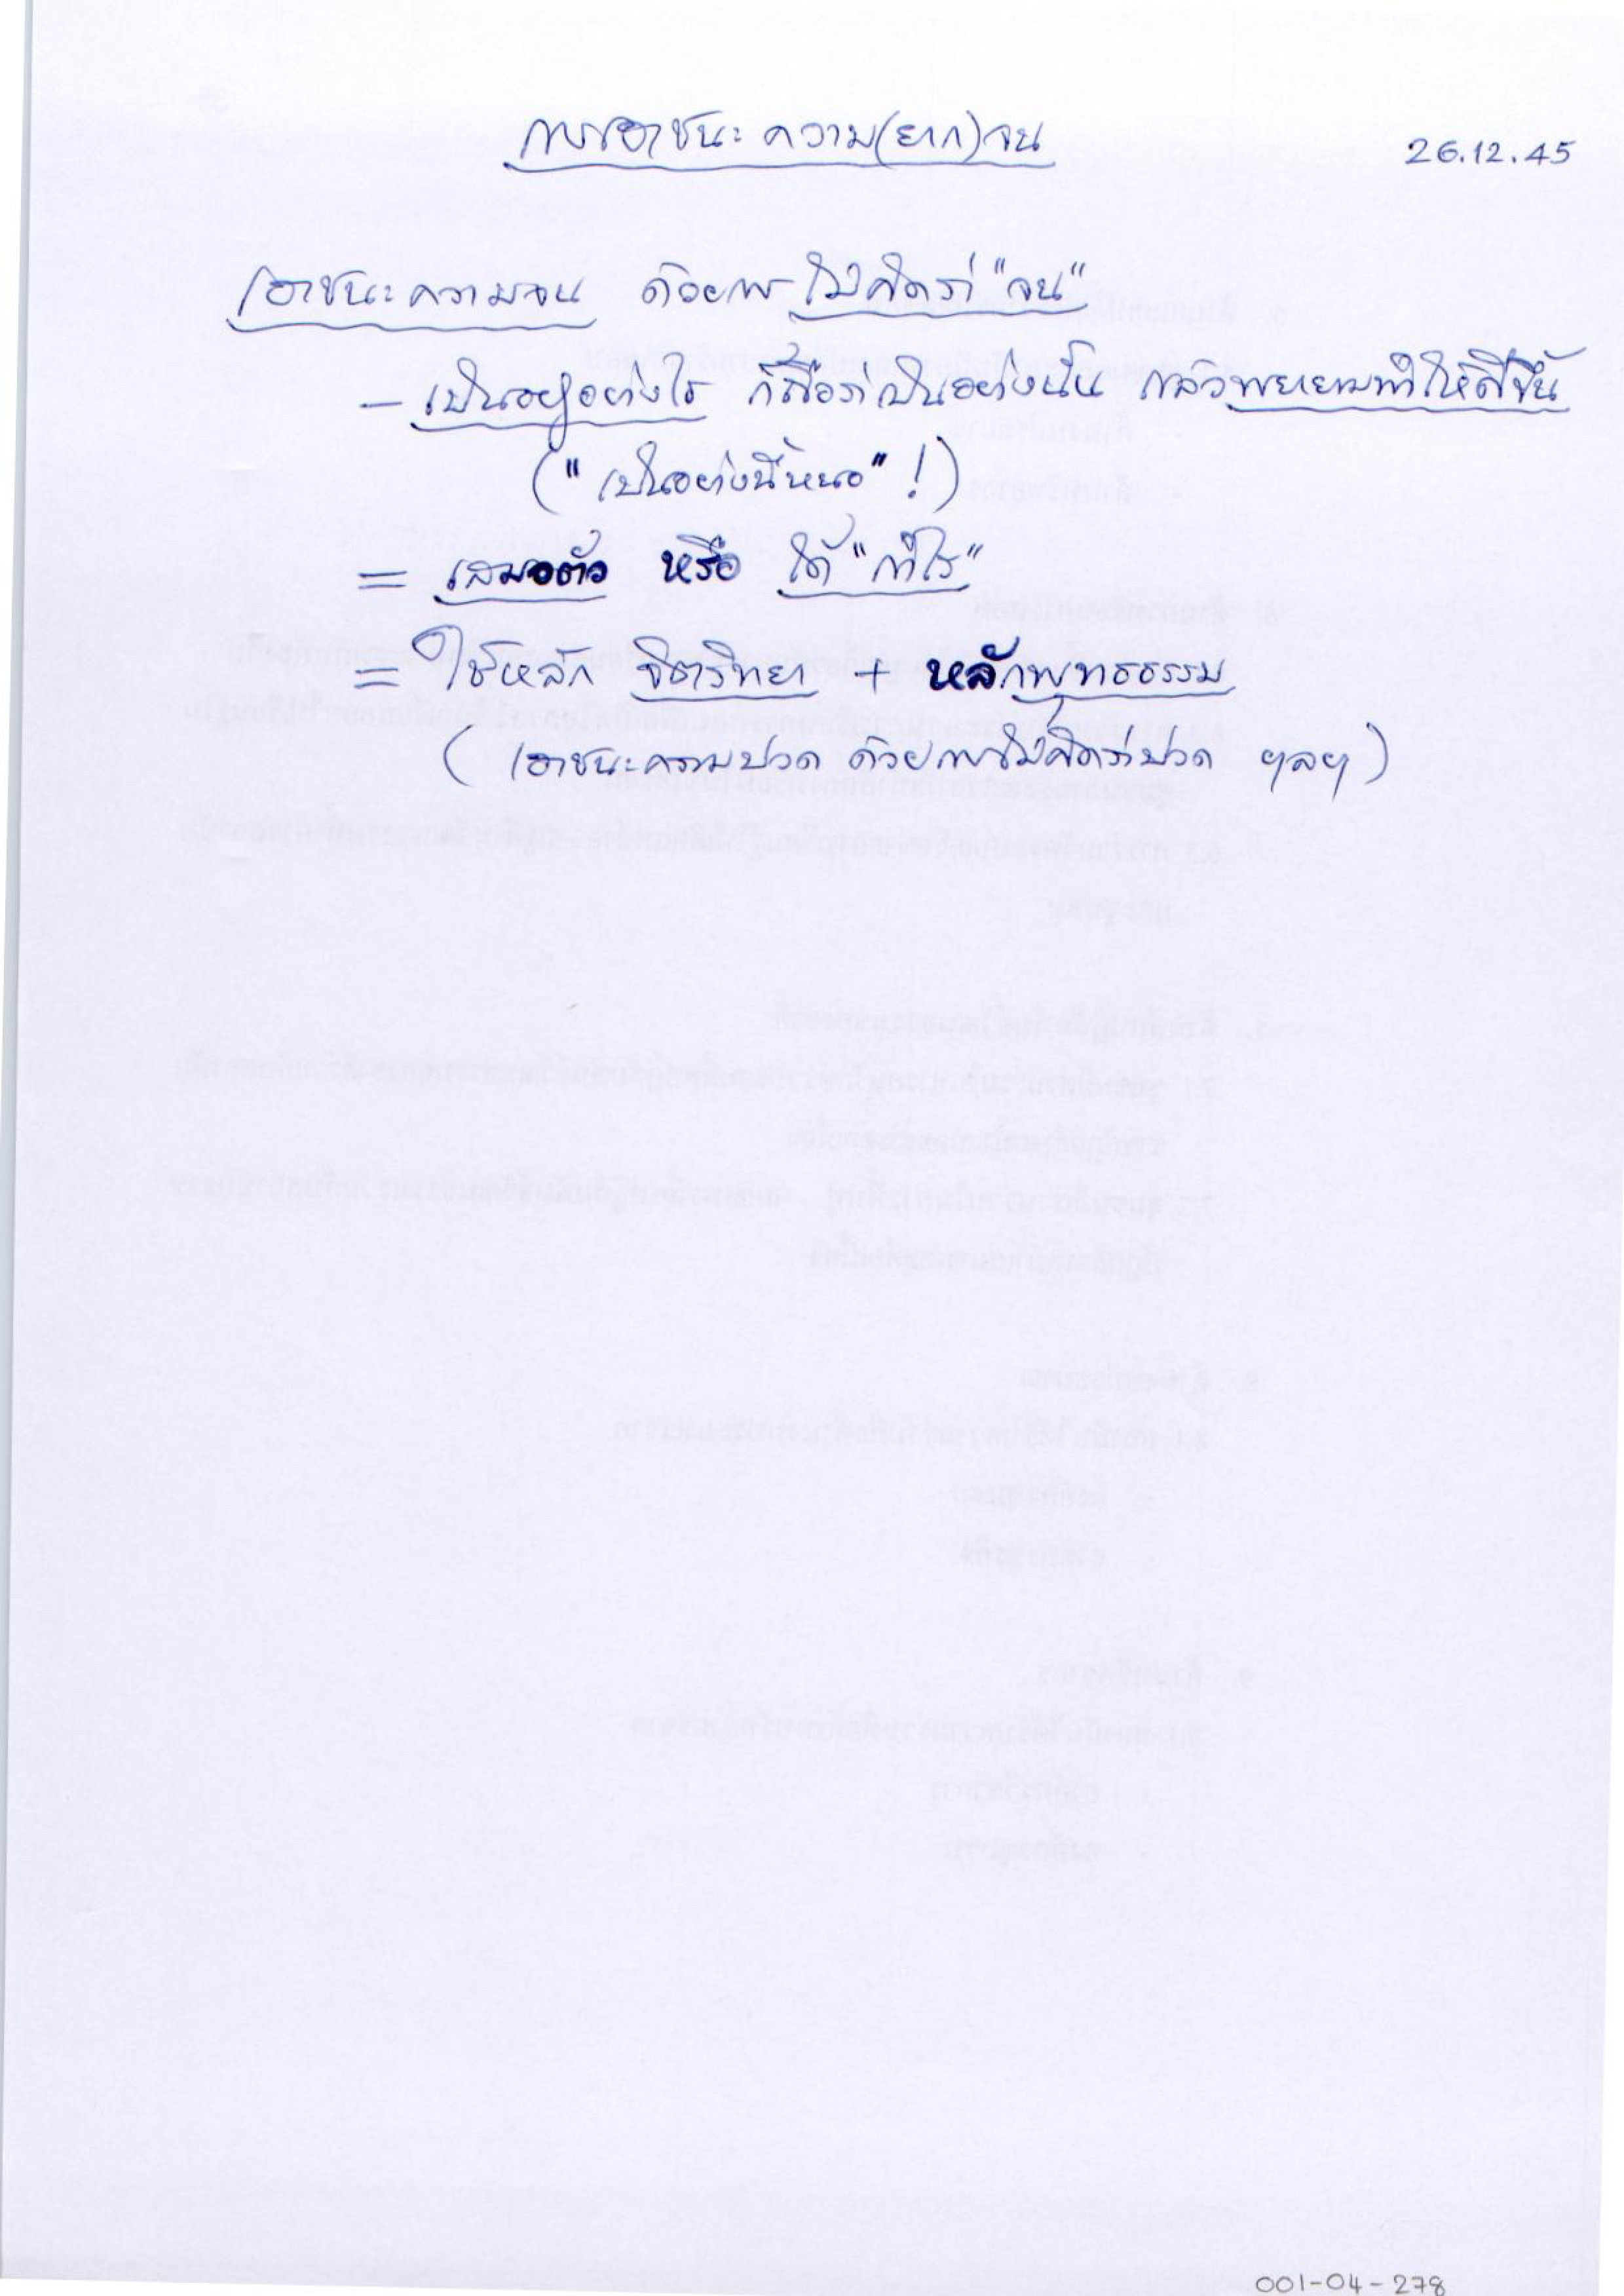 การเอาชนะความ(ยาก)จน
26.12.45
เอาชนะความจน ด้วยการไม่คิดว่า "จน"
– เป็นอยู่อย่างไร ก็ถือว่าเป็นอย่างนั้น แล้วพยายามทำให้ดีขึ้น
("เป็นอย่างนี้หนอ" !)
= เสมอตัว หรือ ได้ "กำไร"
= ใช้หลัก จิตวิทยา + หลักพุทธธรรม
(เอาชนะความปวด ด้วยการไม่คิดว่าปวด ฯลฯ)
001-04-278